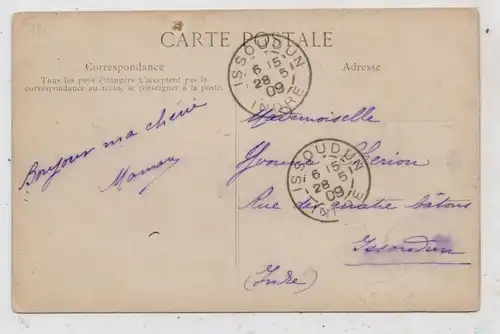 CARTE POSTALE
Correspondance
Tous les pays étrangers n'acceptent pas la
correspondance au recto, se renseigner à la poste.
Adresse
ISSOUDUN
6 15
28 -5
09
INDRE
Bonjour ma chérie
Maman
Mademoiselle
Yvonne
ISSOUDUN
6 15
28 -5
09
INDRE
Rue des quatre bâtons
Issoudun
(Indre)